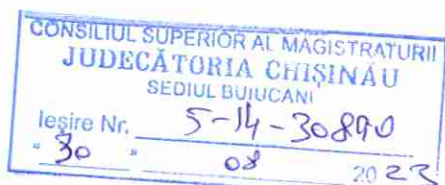 CONSILIUL SUPERIOR AL MAGISTRATURII
JUDECĂTORIA CHIȘINĂU
SEDIUL BUIUCANI
Ieșire Nr. 5-14-30890
"30" 08 2022